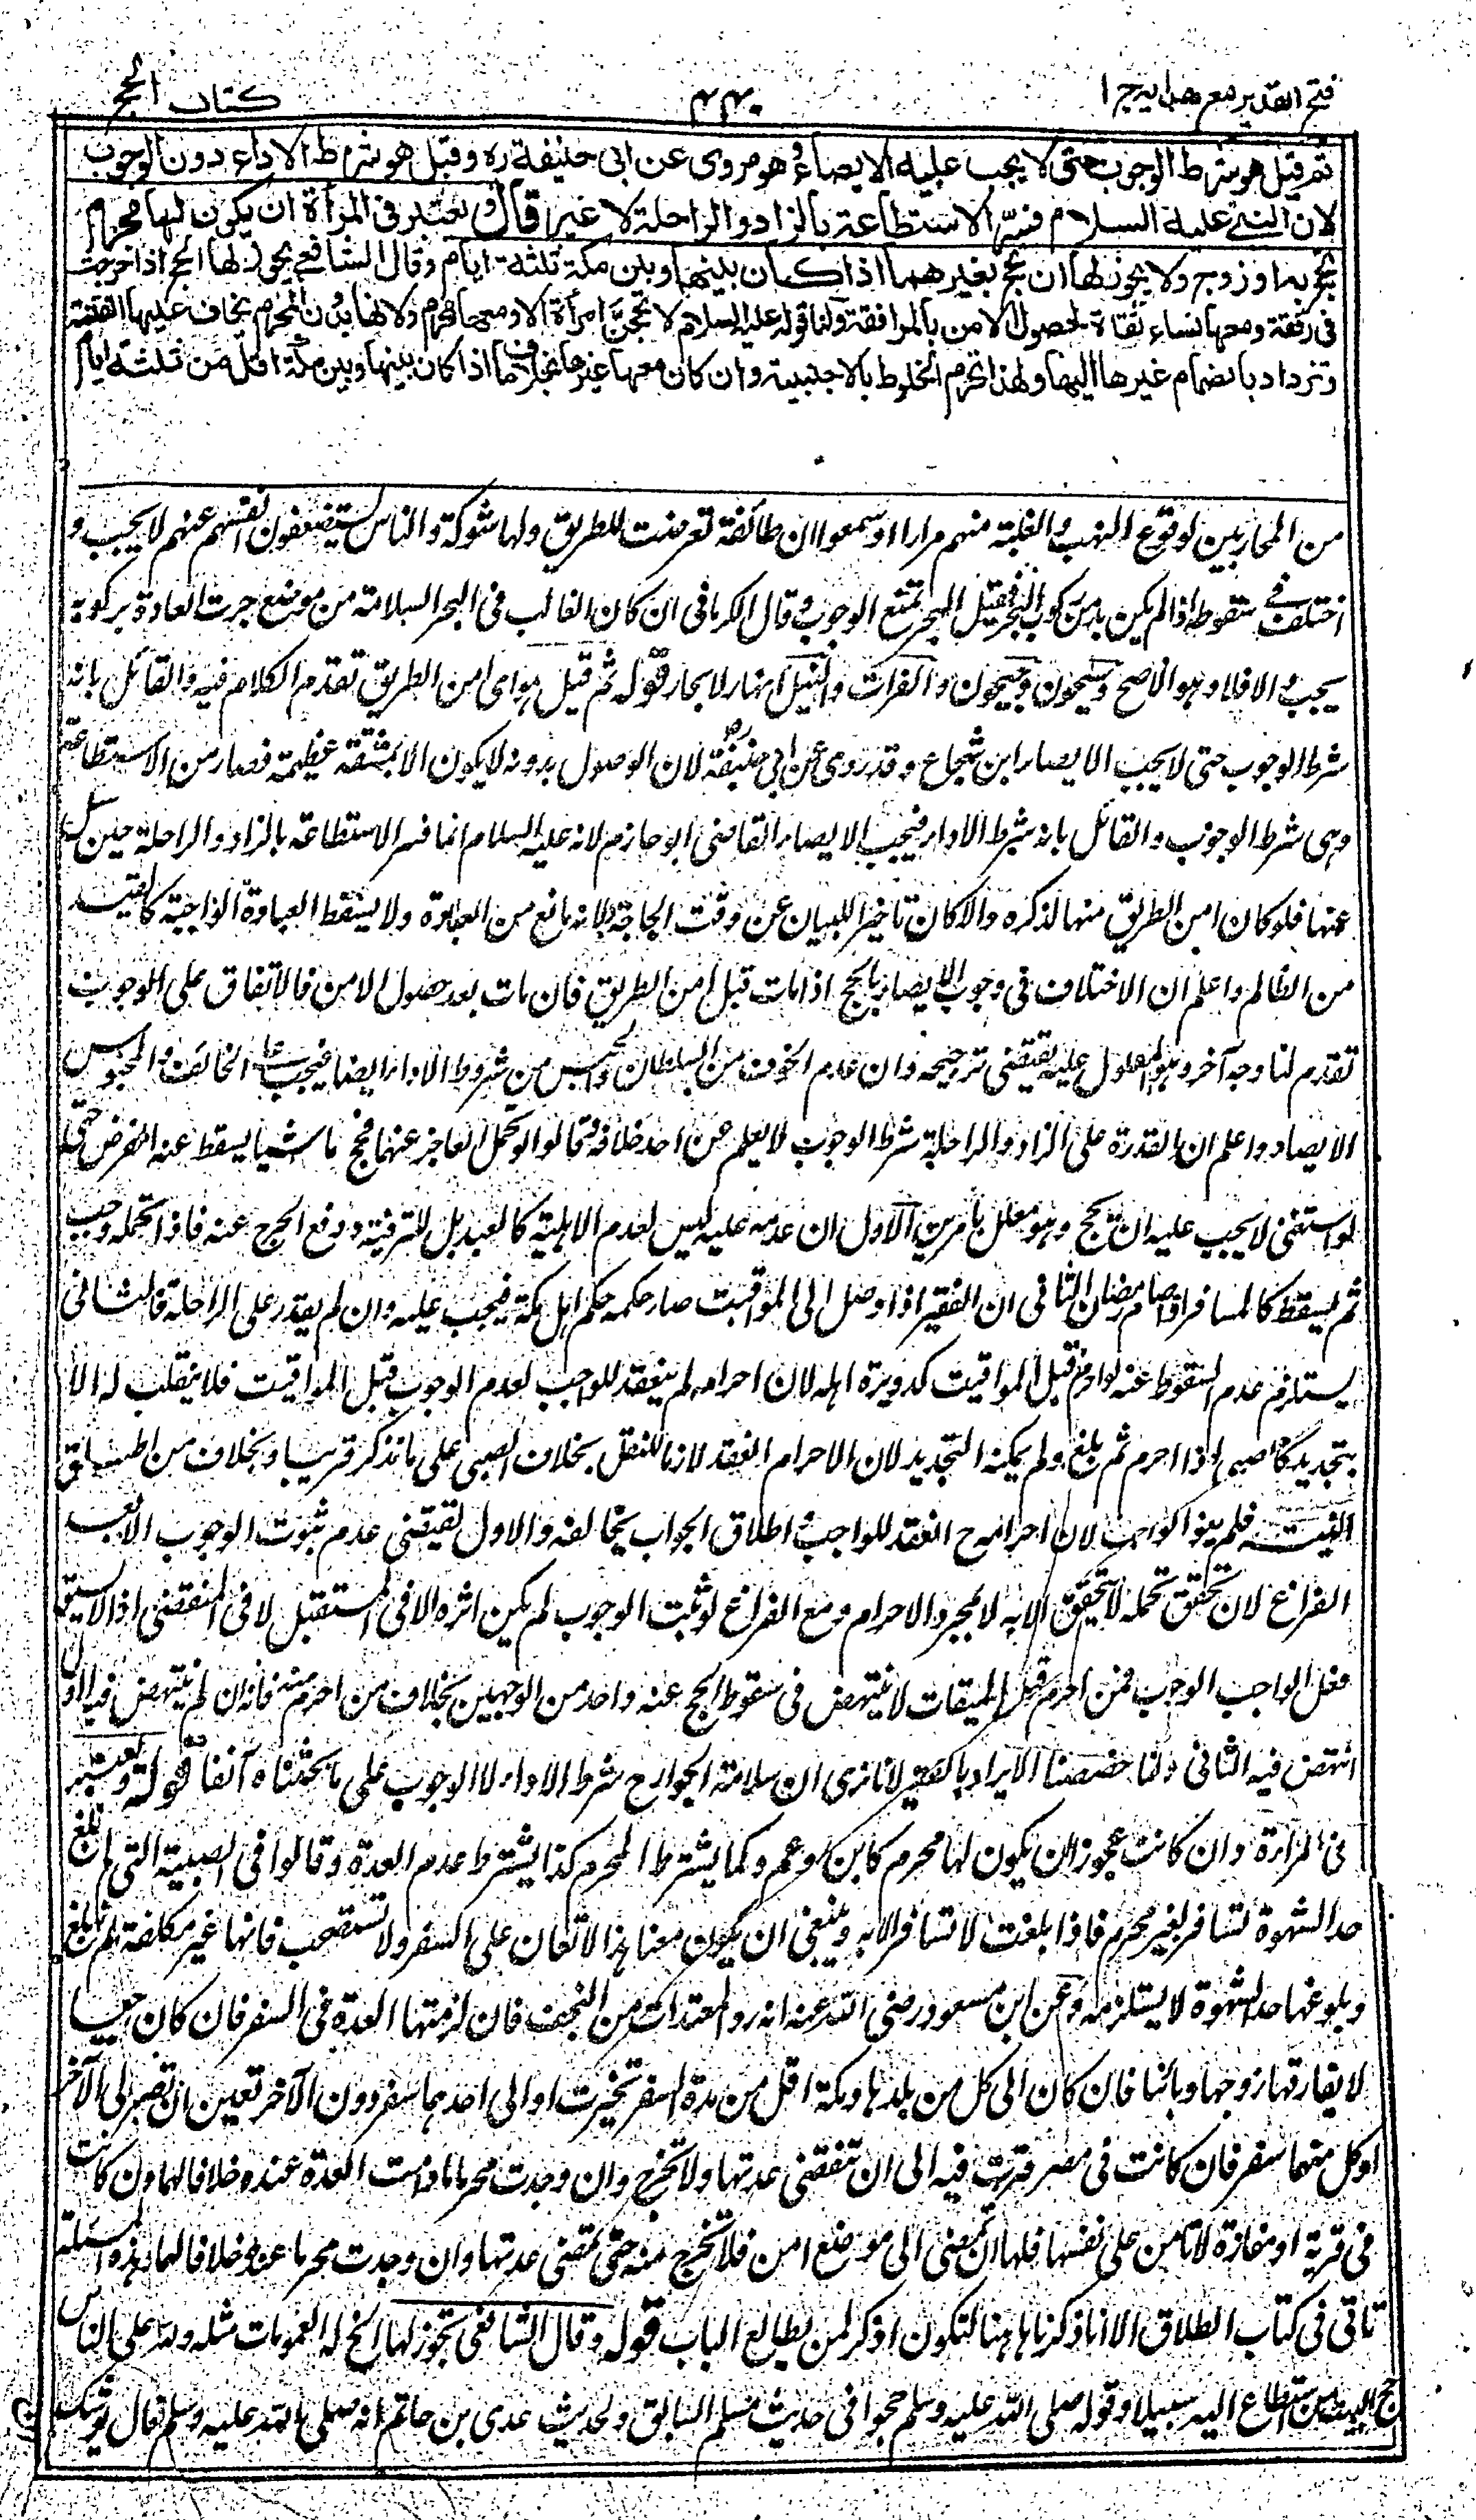 فتح القدير مع هداية ج ا
۴۴۰
كتاب الحج
ثم قيل هو شرط الوجوب حتى لا يجب عليه الايصاء وهو مروى عن ابى حنيفة ره وقيل هو شرط الاداء دون الوجوب
لان النبى عليه السلام فسّر الاستطاعة بالزاد والراحلة لا غير قال ويعتبر فى المرأة ان يكون لها محرم
تحج به او زوج ولا يجوز لها ان تحج بغيرهما اذا كان بينها وبين مكة ثلثة ايام وقال الشافعى يجوز لها الحج اذا خرجت
فى رفقة ومعها نساء ثقاة لحصول الامن بالمرافقة ولنا قوله عليه السلام لا تحجنّ امرأة الا ومعها محرم ولانها بدون المحرم يخاف عليها الفتنة
وتزداد بانضمام غيرها اليها ولهذا تحرم الخلوة بالاجنبية وان كان معها غيرها بخلاف ما اذا كان بينها وبين مكة اقل من ثلثة ايام
من المحاربين لوقوع النهب والغلبة منهم مرارا او سمعوا ان طائفة تعرضت للطريق ولها شوكة والناس يستضعفون انفسهم عنهم لا يجب و
اختلف فى سقوطه اذا لم يكن بد من ركوب البحر فقيل البحر يمنع الوجوب وقال الكرمانى ان كان الغالب فى البحر السلامة من موضع جرت العادة بركوبه
يجب والا فلا وهو الاصح وسيحون وجيحون والفرات والنيل انهار لا بحار قوله ثم قيل هو اى امن الطريق تقدم الكلام فيه والقائل بانه
شرط الوجوب حتى لا يجب الايصاء ابن شجاع وقد روى عن ابى حنيفة رح لان الوصول بدونه لا يكون الا بمشقة عظيمة فصار من الاستطاعة
وهى شرط الوجوب والقائل بانه شرط الاداء فيجب الايصاء القاضى ابو حازم لانه عليه السلام انما فسر الاستطاعة بالزاد والراحلة حين سئل
عنها فلو كان امن الطريق منها لذكره والا كان تاخيرا للبيان عن وقت الحاجة ولانه مانع من العبادة ولا يسقط العبادة الواجبة كالقيد
من الظالم واعلم ان الاختلاف فى وجوب الايصاء بالحج اذا مات قبل امن الطريق فان مات بعد حصول الامن فالاتفاق على الوجوب
تقدم لنا وجه آخر وهو المعول عليه يقتضى ترجيحه وان عدم الخوف من السلطان والحبس من شروط الاداء ايضا فيجب على الخائف والمحبوس
الايصاء واعلم ان القدرة على الزاد والراحلة شرط الوجوب لا يعلم عن احد خلافه وقالوا لو تحمل العاجز عنها فحج ماشيا يسقط عنه الفرض حتى
لو استغنى لا يجب عليه ان يحج وهو معلل بامرين الاول ان عدمه عليه ليس لعدم الاهلية كالعبد بل للترفيه ودفع الحرج عنه فاذا تحمله وجب
ثم يسقط كالمسافر اذا صام رمضان الثانى ان الفقير اذا وصل الى المواقيت صار حكمه حكم اهل مكة فيجب عليه وان لم يقدر على الراحلة فالثانى
يستلزم عدم السقوط عنه لو احرم قبل المواقيت كدويرة اهله لان احرامه لم ينعقد للواجب لعدم الوجوب قبل المواقيت فلا ينقلب له الا
بتجديد كالصبى اذا احرم ثم بلغ ولم يمكنه التجديد لان الاحرام انعقد لازما للنفل بخلاف الصبى على ما نذكر قريبا وبخلاف من اطلق
النية فلم ينو الواجب لان احرامه ح انعقد للواجب اطلاق الجواب يخالفه والاول يقتضى عدم ثبوت الوجوب الا بعد
الفراغ لان تحقق تحمله لا يتحقق الا به لا بمجرد الاحرام ومع الفراغ لو ثبت الوجوب لم يكن اثره الا فى المستقبل لا فى المنقضى اذ لا يسبق
فعل الواجب الوجوب فمن احرم قبل الميقات لا ينتهض فى سقوط الحج عنه واحد من الوجهين بخلاف من احرم منه فانه ان لم ينتهض فيه الاول
انتهض فيه الثانى وانما خصصنا الايراد بالفقير لانا نرى ان سلامة الجوارح شرط الاداء لا الوجوب على ما بحثناه آنفا قوله ويعتبر
فى المرأة وان كانت عجوزا ان يكون لها محرم كابن او عم وكما يشترط المحرم كذا يشترط عدم العدة وقالوا فى الصبية التى لم تبلغ
حد الشهوة تسافر بغير محرم فاذا بلغت لا تسافر الا به وينبغى ان يكون معنا هذا لا تعان على السفر ولا تستصحب فانها غير مكلفة لم تبلغ
وبلوغها حد الشهوة لا يستلزمه وعن ابن مسعود رضى الله عنه انه رد المعتدات من النجف فان لزمتها العدة فى السفر فان كان رجعيا
لا يفارقها زوجها او بائنا فان كان الى كل من بلدها ومكة اقل من مدة السفر تخيرت او الى احدهما سفر دون الآخر تعين ان تصير الى الآخر
او كل منهما سفر فان كانت فى مصر قرت فيه الى ان تنقضى عدتها ولا تخرج وان وجدت محرما ما دامت العدة عنده خلافا لهما وان كانت
فى قرية او مفازة لا تأمن على نفسها فلها ان تمضى الى موضع امن فلا تخرج منه حتى تمضى عدتها وان وجدت محرما عنده خلافا لهما وهذه المسئلة
تاتى فى كتاب الطلاق الا انا ذكرناها هنا لتكون اذكر لمن يطالع الباب قوله وقال الشافعى يجوز لها الخ له العمومات مثل ولله على الناس
حج البيت من استطاع اليه سبيلا وقوله صلى الله عليه وسلم حجوا فى حديث مسلم السابق ولحديث عدى بن حاتم انه صلى الله عليه وسلم قال يوشك